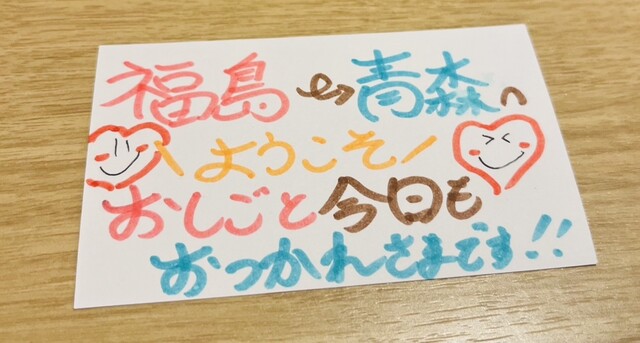 福島→青森へ
\ようこそ/
おしごと今日も
おつかれさまです!!